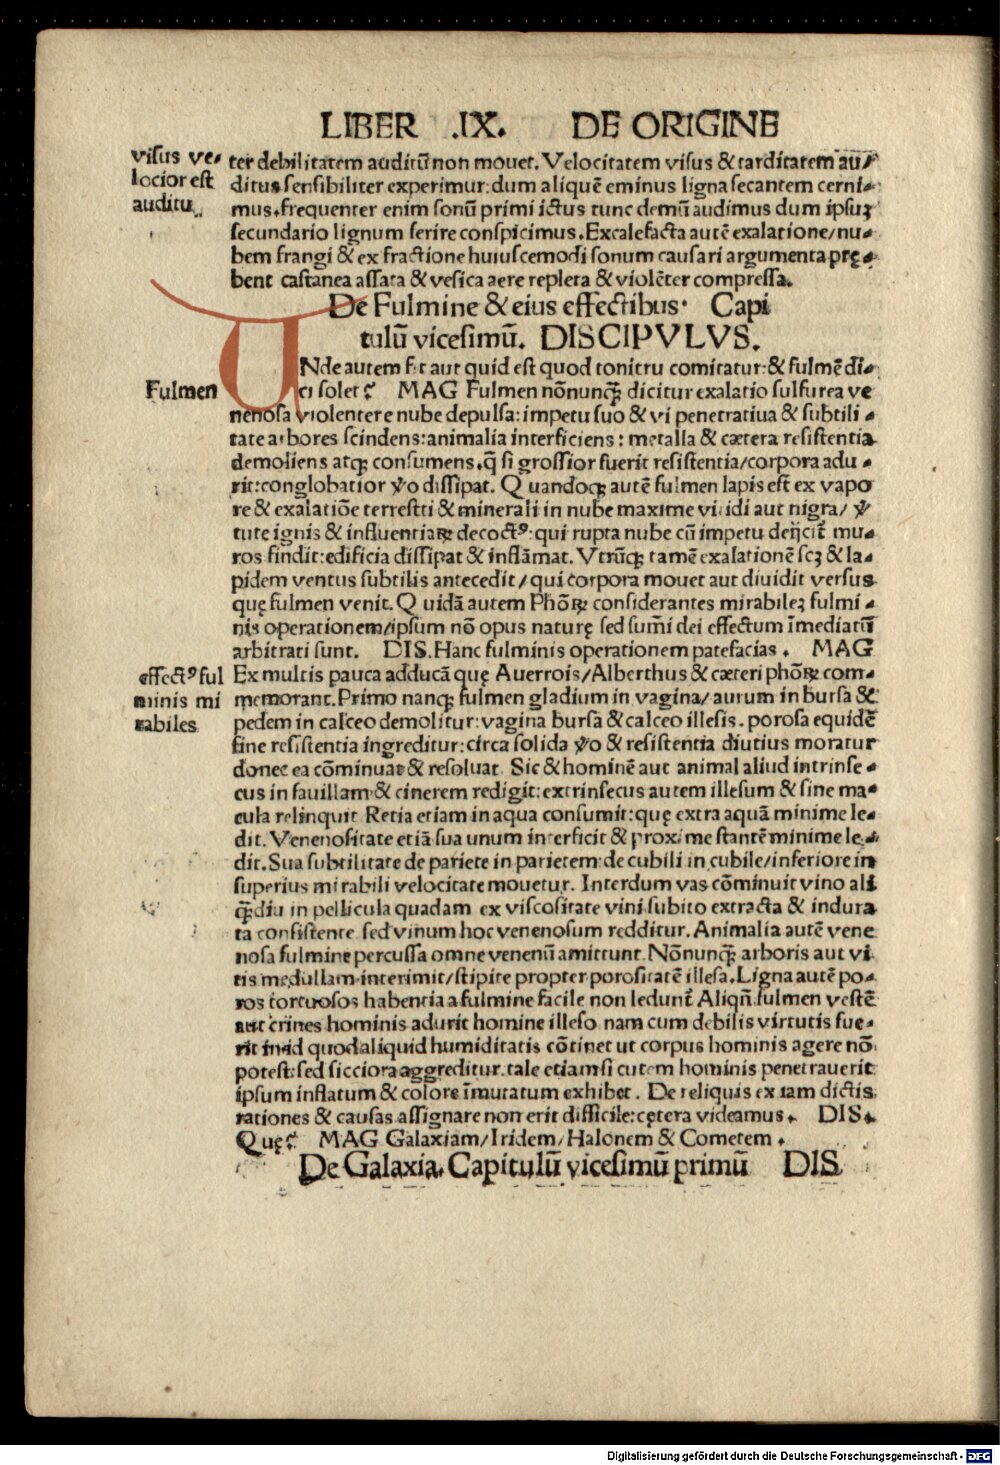 LIBER .IX. DE ORIGINE
visus ve⸗
locior est
auditu.
ter debilitatem auditū non mouet. Velocitatem visus & tarditatem au⸗
ditus sensibiliter experimur: dum aliquē eminus ligna secantem cerni⸗
mus. frequenter enim sonū primi ictus tunc demū audimus dum ipsuꝫ
secundario lignum ferire conspicimus. Excalefacta autē exalatione/nu⸗
bem frangi & ex fractione huiuscemodi sonum causari argumenta prę⸗
bent castanea assata & vesica aere repleta & violēter compressa.
De Fulmine & eius effectibus. Capi
tulū vicesimū. DISCIPVLVS.
Fulmen
UNde autem fit aut quid est quod tonitru comitatur: & fulmē di⸗
ci solet? MAG Fulmen nōnunꝗ̄ dicitur exalatio sulfurea ve
nenosa violenter e nube depulsa: impetu suo & vi penetratiua & subtili⸗
tate arbores scindens: animalia interficiens: metalla & cætera resistentia
demoliens atqꝫ consumens. ꝗ̄ si grossior fuerit resistentia/corpora adu⸗
rit: conglobatior ꝟo dissipat. Quandoqꝫ autē fulmen lapis est ex vapo
re & exalatiōe terrestri & minerali in nube maxime viridi aut nigra/ ꝟ
tute ignis & influentiaꝝ decoctꝰ: qui rupta nube cū impetu deijcit̄ mu⸗
ros findit: edificia dissipat & inflāmat. Vtrūqꝫ tamē exalationē scꝫ & la⸗
pidem ventus subtilis antecedit/ qui corpora mouet aut diuidit versus
quę fulmen venit. Quidā autem Phōꝝ considerantes mirabileꝫ fulmi⸗
nis operationem/ipsum nō opus naturę sed sum̄i dei effectum īmediatū
arbitrati sunt. DIS. Hanc fulminis operationem patefacias. MAG
effectꝰ ful
minis mi
rabiles
Ex multis pauca adducā quę Auerrois/Alberthus & cæteri phōꝝ com⸗
memorant. Primo nanqꝫ fulmen gladium in vagina/ aurum in bursa &
pedem in calceo demolitur: vagina bursa & calceo illesis. porosa equidē
sine resistentia ingreditur: circa solida ꝟo & resistentia diutius moratur
donec ea cōminuat & resoluat. Sic & hominē aut animal aliud intrinse⸗
cus in fauillam & cinerem redigit: extrinsecus autem illesum & sine ma⸗
cula relinquit Retia etiam in aqua consumit: quę extra aquā minime le⸗
dit. Venenositate etiā sua unum interficit & proxime stantē minime le⸗
dit. Sua subtilitate de pariete in parietem: de cubili in cubile/inferiore in
superius mirabili velocitate mouetur. Interdum vas cōminuit vino ali
ꝗ̄diu in pellicula quadam ex viscositate vini subito extracta & indura
ta consistente sed vinum hoc venenosum redditur. Animalia autē vene
nosa fulmine percussa omne venenū amittunt. Nōnunꝗ̄ arboris aut vi⸗
tis medullam interimit/stipite propter porositatē illesa. Ligna autē po⸗
ros tortuosos habentia a fulmine facile non ledunt̄ Aliqn̄ fulmen vestē
aut crines hominis adurit homine illeso nam cum debilis virtutis fue⸗
rit in id quod aliquid humiditatis cōtinet ut corpus hominis agere nō
potest: sed sicciora aggreditur. tale etiamsi cutem hominis penetrauerit
ipsum inflatum & colore īmutatum exhibet. De reliquis ex iam dictis
rationes & causas assignare non erit difficile: cętera videamus. DIS.
Quę? MAG Galaxiam/Iridem/Halonem & Cometem.
De Galaxia. Capitulū vicesimū primū DIS
Digitalisierung gefördert durch die Deutsche Forschungsgemeinschaft - DFG